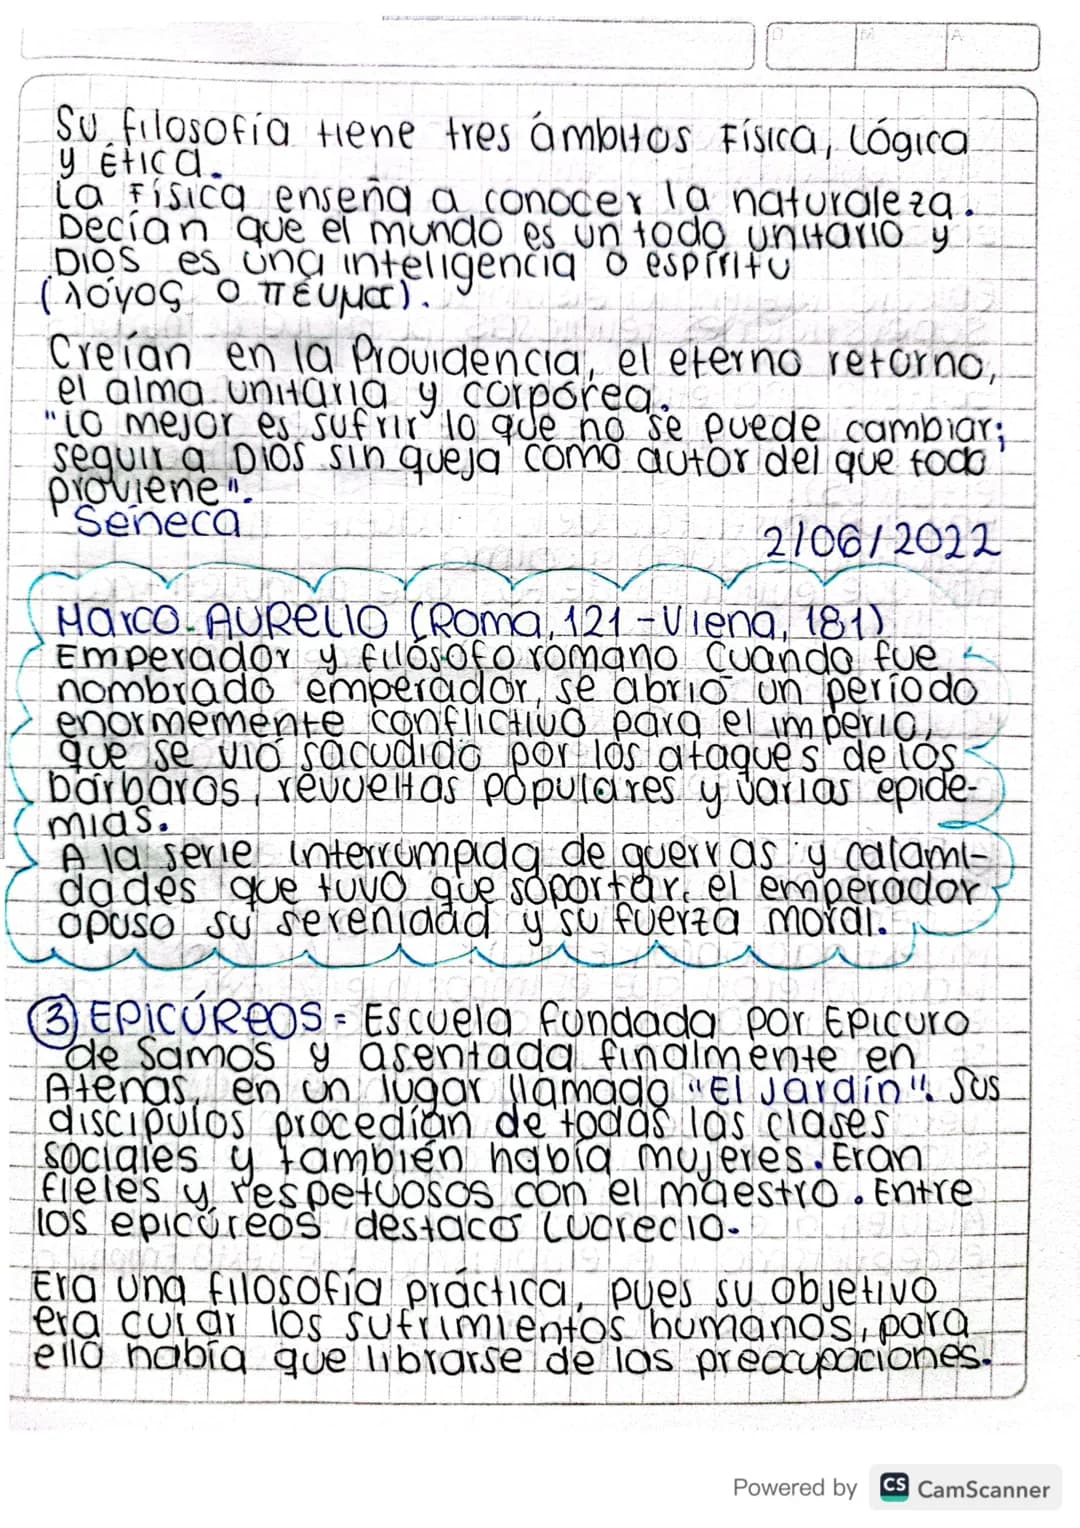 D M A
Su filosofía tiene tres ámbitos Física, Lógica
y Ética.
La Física enseña a conocer la naturaleza.
Decían que el mundo es un todo unitario y
Dios es una inteligencia o espíritu
(λόγος o πέυμα).
Creían en la Providencia, el eterno retorno,
el alma unitaria y corpórea.
"Lo mejor es sufrir lo que no se puede cambiar;
seguir a Dios sin queja como autor del que todo
proviene".
Séneca
2/06/2022
Marco Aurelio (Roma, 121 - Viena, 181)
Emperador y filósofo romano Cuando fue
nombrado emperador, se abrió un período
enormemente conflictivo para el imperio,
que se vió sacudido por los ataques de los
bárbaros, revueltas populares y varias epide-
mias.
A la serie interrumpida de guerras y calami-
dades que tuvo que soportar, el emperador
opuso su serenidad y su fuerza moral.
③ EPICÚREOS = Escuela fundada por Epicuro
de Samos y asentada finalmente en
Atenas, en un lugar llamado "El Jardín". Sus
discípulos procedían de todas las clases
sociales y también había mujeres. Eran
fieles y respetuosos con el maestro. Entre
los epicúreos destaco Lucrecio.
Era una filosofía práctica, pues su objetivo
era curar los sufrimientos humanos, para
ello había que librarse de las preocupaciones.
Powered by CS CamScanner